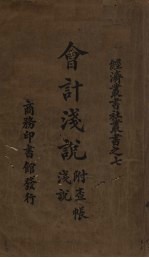 經濟叢書社叢書之七
會計淺說
附查帳
淺說
商務印書館發行